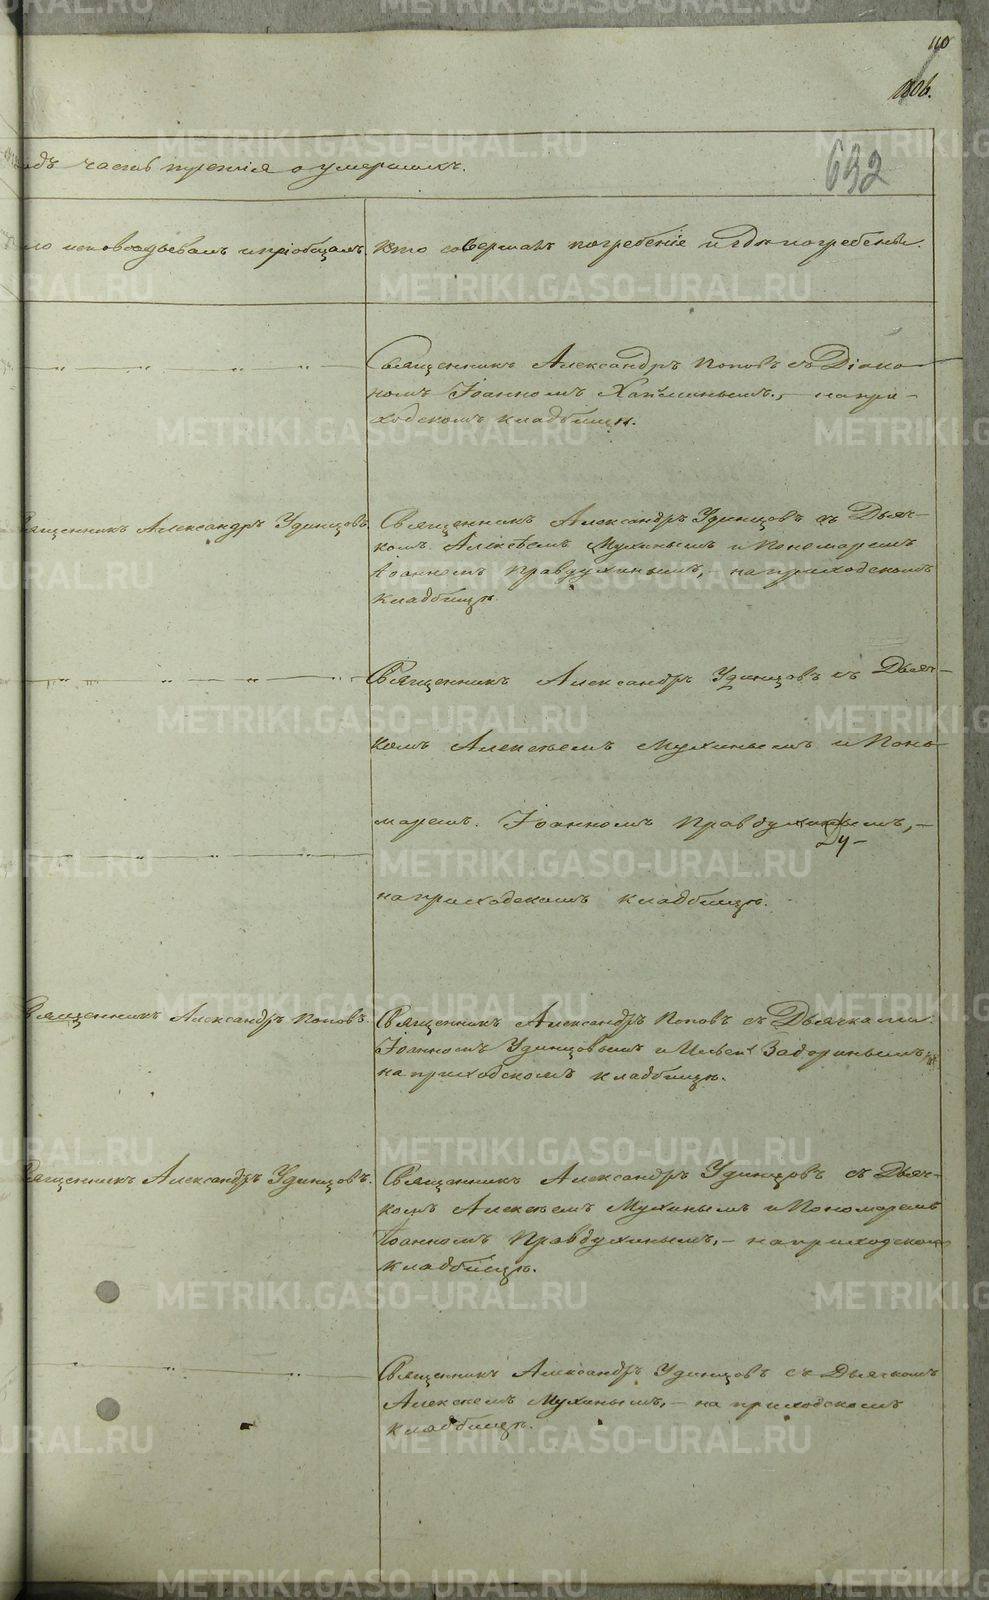 110
1806.
632
годъ часть третія о умершихъ.
исповѣдывалъ и пріобщалъ.
Кто совершалъ погребеніе и гдѣ погребены.
Священникъ Александръ Поповъ съ Діако-
номъ Іоанномъ Хапчинымъ, на при-
ходскомъ кладбищѣ.
Священникъ Александръ Удинцовъ.
Священникъ Александръ Удинцовъ съ Дьяч-
комъ Алексѣемъ Мухинымъ и Пономаремъ
Іоанномъ Правдухинымъ, на приходскомъ
кладбищѣ.
Священникъ Александръ Удинцовъ съ Дьяч-
комъ Алексѣемъ Мухинымъ и Поно-
маремъ Іоанномъ Правдухинымъ,-
на приходскомъ кладбищѣ.
Священникъ Александръ Поповъ.
Священникъ Александръ Поповъ съ Дьячками
Іоанномъ Удинцовымъ и Ильею Задоринымъ,
на приходскомъ кладбищѣ.
Священникъ Александръ Удинцовъ.
Священникъ Александръ Удинцовъ съ Дьяч-
комъ Алексѣемъ Мухинымъ и Пономаремъ
Іоанномъ Правдухинымъ,- на приходскомъ
кладбищѣ.
Священникъ Александръ Удинцовъ съ Дьячкомъ
Алексѣемъ Мухинымъ,- на приходскомъ
кладбищѣ.
METRIKI.GASO-URAL.RU